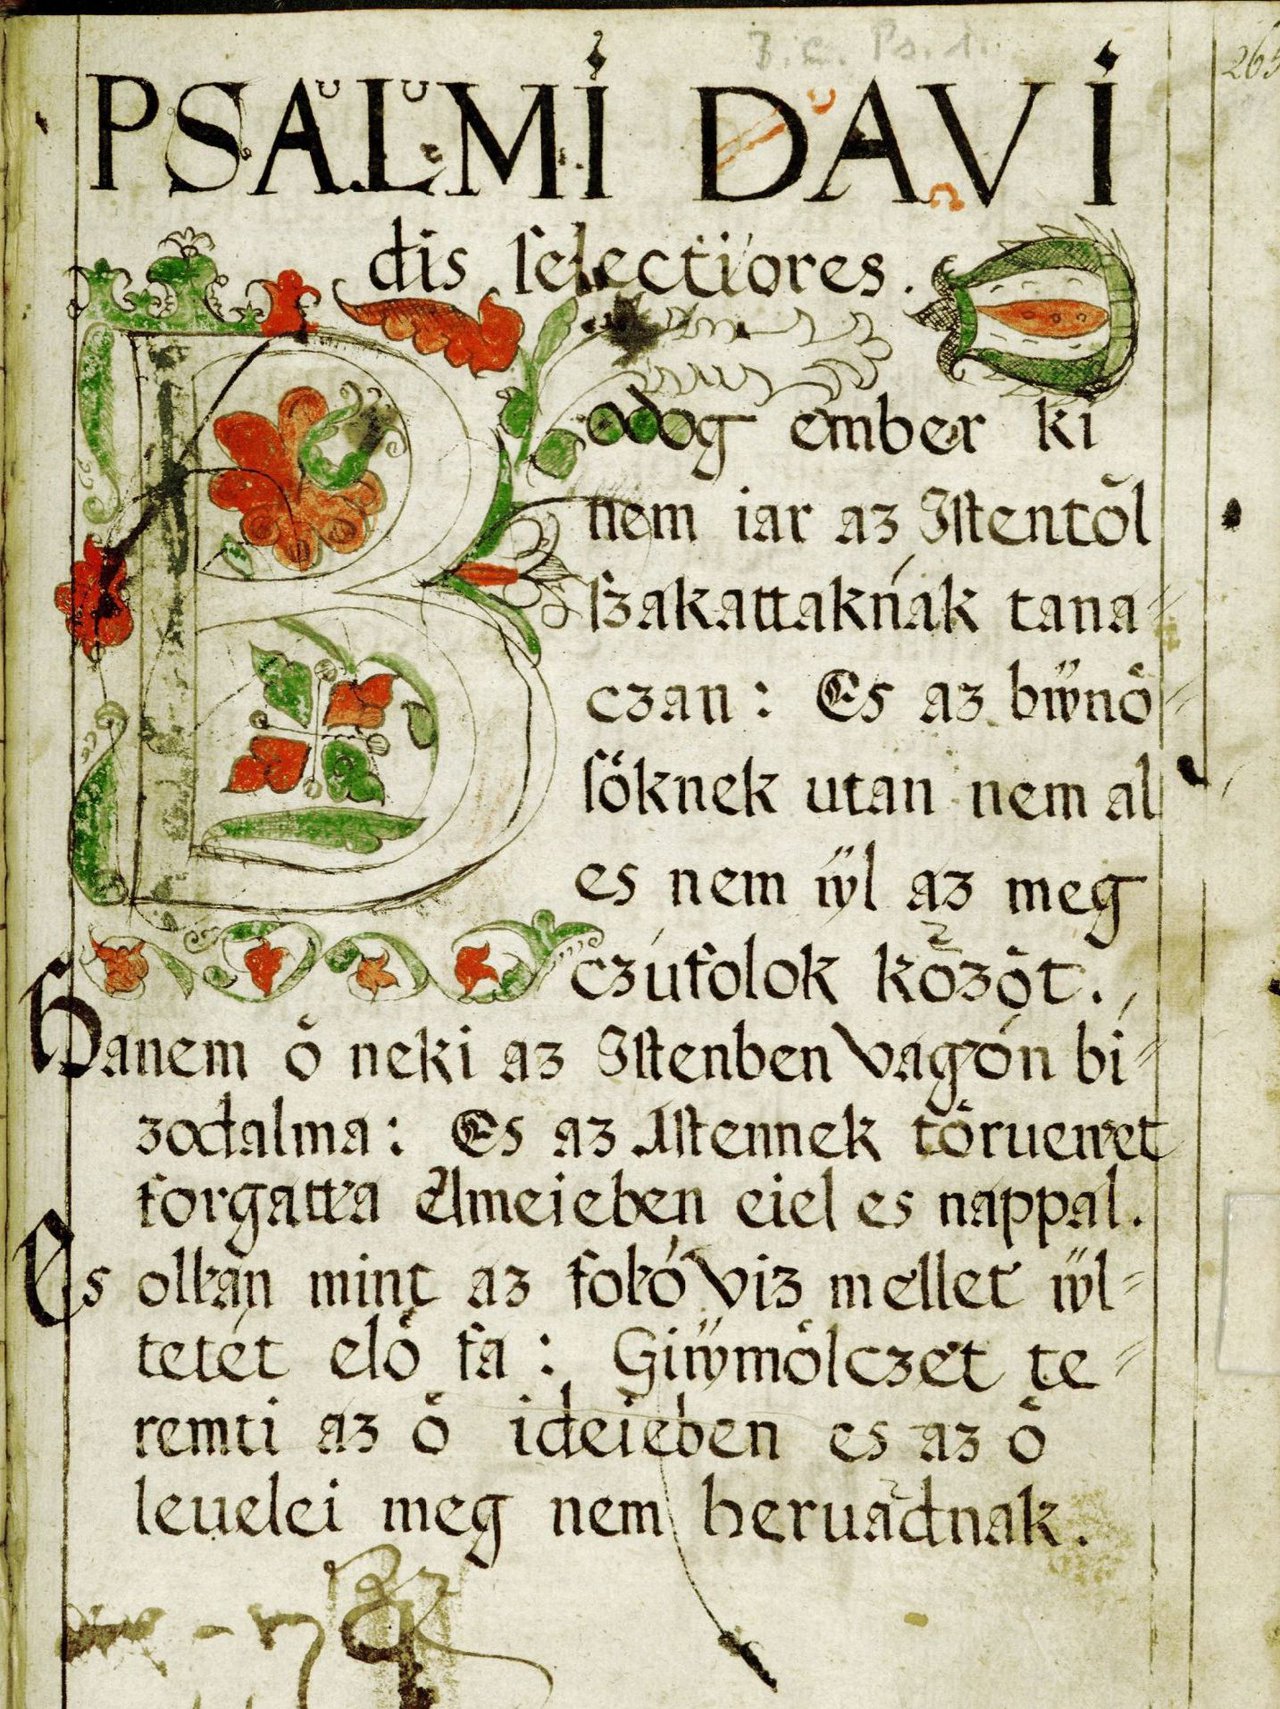 265
PSALMI DAVI
dis selectiores.
Bodog ember ki
nem iar az Istentöl
szakattaknak tana⸗
czan: Es az bẅnö⸗
söknek utan nem al
es nem ẅl az meg
czúfolok közöt.
Hanem ö neki az Istenben vagon bi⸗
zodalma: Es az Istennek törueniet
forgattia elmeieben eiel es nappal.
Es ollian mint az folió viz mellet ẅl⸗
tetét elö fa: Giẅmölczet te⸗
remti az ö ideieben es az ö
leuelei meg nem heruadnak.